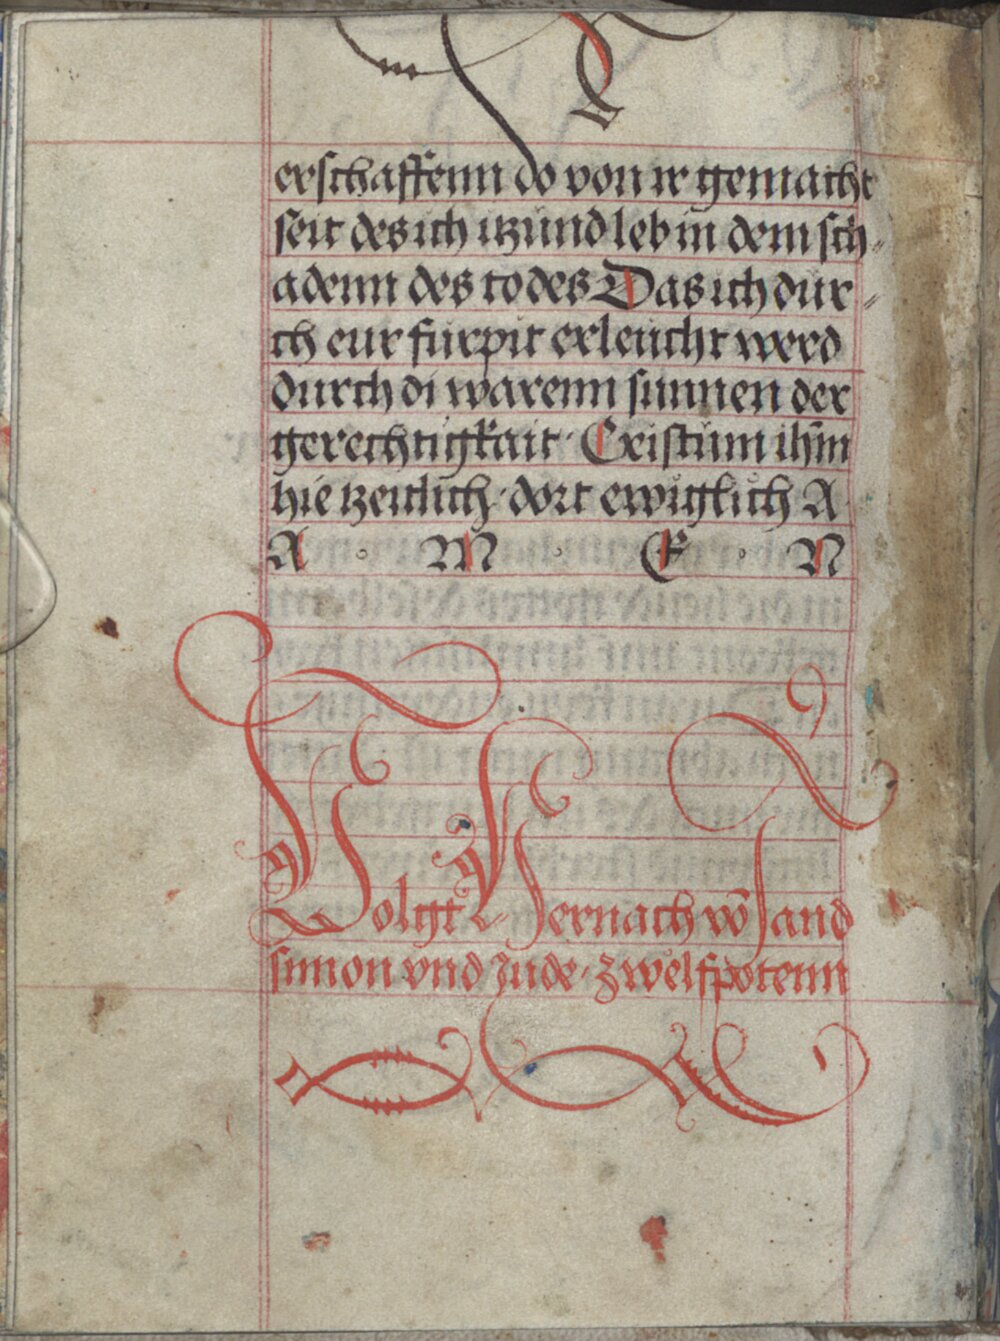 erschaffenn do von ir gemacht
seit des ich itzund leb in dem sch⸗
adenn des todes Das ich dur⸗
ch eur furpit erleücht werd
durch di warenn sunnen der
gerechtigkait · Cristum ihm̄
hie tzeitlich · dort ewigklich A
A · M · E · N
Volgt Hernach vō Sand
simon vnd Jude · zwelfpotenn